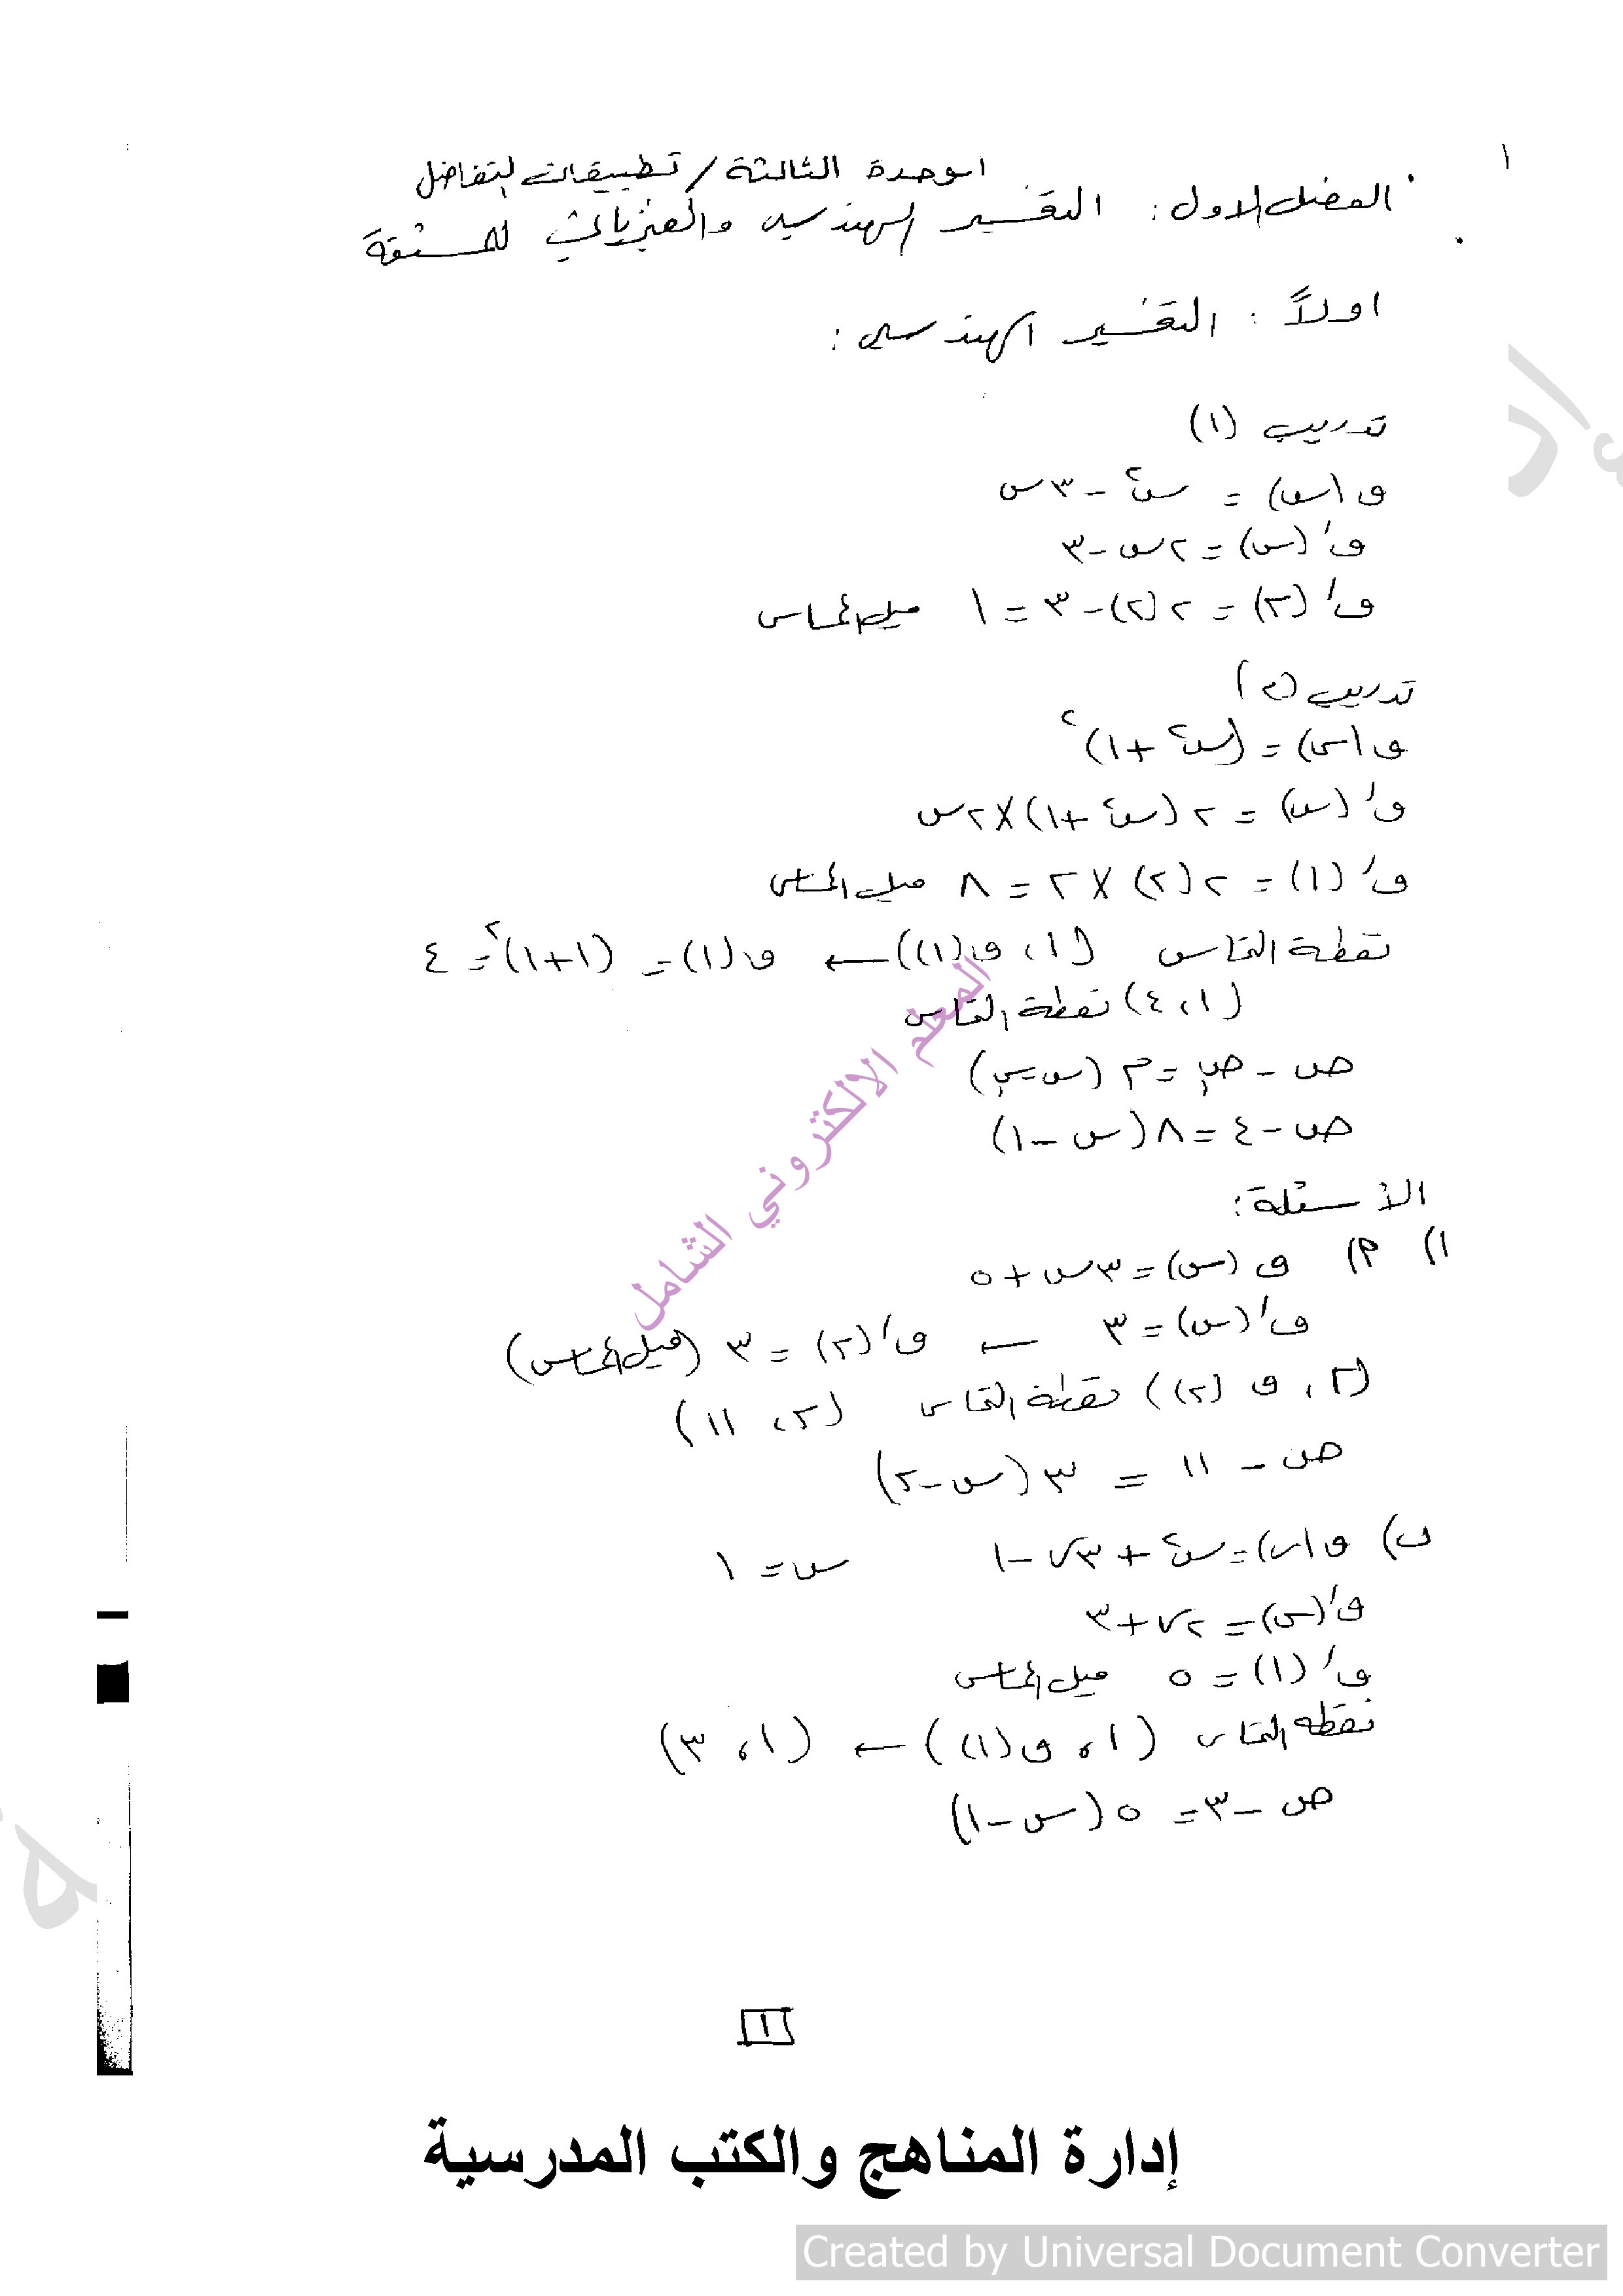 ١
الوحدة الثالثة / تطبيقات التفاضل
الفصل الاول : التفسير الهندسي والفيزيائي للمشتقة
اولاً : التفسير الهندسي :
تدريب (١)
ق(س) = س٢ - ٣س
ق/(س) = ٢س - ٣
ق/(٢) = ٢(٢) - ٣ = ١ ميل المماس
تدريب (٢)
ق(س) = (س٢ + ١)٢
ق/(س) = ٢(س٢ + ١)×٢س
ق/(١) = ٢(٢)×٢ = ٨ ميل المماس
نقطة التماس (١، ق(١)) ← ق(١) = (١+١)٢ = ٤
(١، ٤) نقطة التماس
ص - ص١ = م(س - س١)
ص - ٤ = ٨(س - ١)
الأسئلة :
١) م) ق(س) = ٣س + ٥
ق/(س) = ٣ ← ق/(٢) = ٣ (ميل المماس)
(٢، ق(٢)) نقطة التماس (٢، ١١)
ص - ١١ = ٣(س - ٢)
ب) ق(س) = س٢ + ٣س - ١ س = ١
ق/(س) = ٢س + ٣
ق/(١) = ٥ ميل المماس
نقطة التماس (١، ق(١)) ← (١، ٣)
ص - ٣ = ٥(س - ١)
المعلم الالكتروني الشامل
١
إدارة المناهج والكتب المدرسية
Created by Universal Document Converter